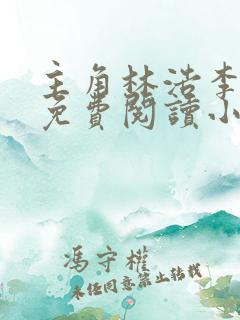 主角林浩李
免費閱讀小
馮守權
未经同意禁止转载